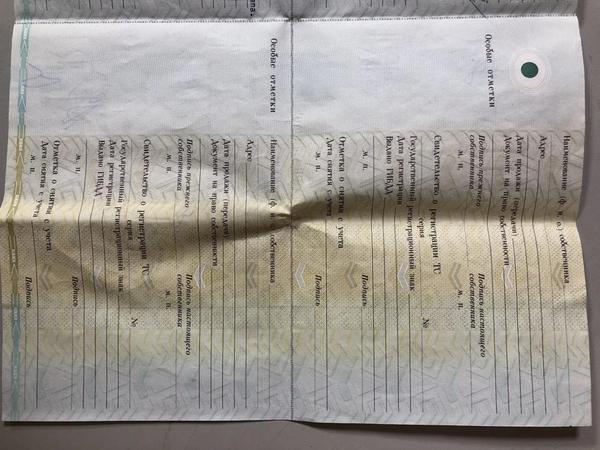 Особые отметки
Наименование (ф. и. о.) собственника
Адрес
Дата продажи (передачи)
Документ на право собственности
Подпись прежнего Подпись настоящего
собственника собственника
м. п. м. п.
Свидетельство о регистрации ТС
серия №
Государственный регистрационный знак
Дата регистрации
Выдано ГИБДД
м. п. Подпись
Отметка о снятии с учета
Дата снятия с учета
м. п. Подпись
Особые отметки
Наименование (ф. и. о.) собственника
Адрес
Дата продажи (передачи)
Документ на право собственности
Подпись прежнего Подпись настоящего
собственника собственника
м. п. м. п.
Свидетельство о регистрации ТС
серия №
Государственный регистрационный знак
Дата регистрации
Выдано ГИБДД
м. п. Подпись
Отметка о снятии с учета
Дата снятия с учета
м. п. Подпись